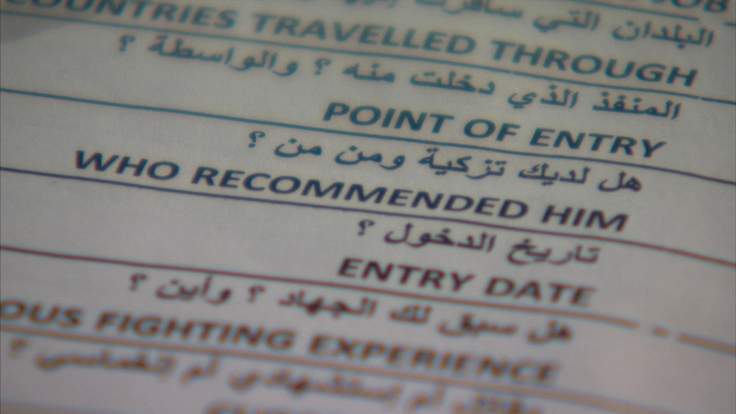 JOB
البلدان التي سافرت
COUNTRIES TRAVELLED THROUGH
المنفذ الذي دخلت منه ؟ والواسطة ؟
POINT OF ENTRY
هل لديك تزكية ومن من ؟
WHO RECOMMENDED HIM
تاريخ الدخول ؟
ENTRY DATE
هل سبق لك الجهاد ؟ وأين ؟
OUS FIGHTING EXPERIENCE
مقاتل أم إستشهادي أم إنغماسي ؟